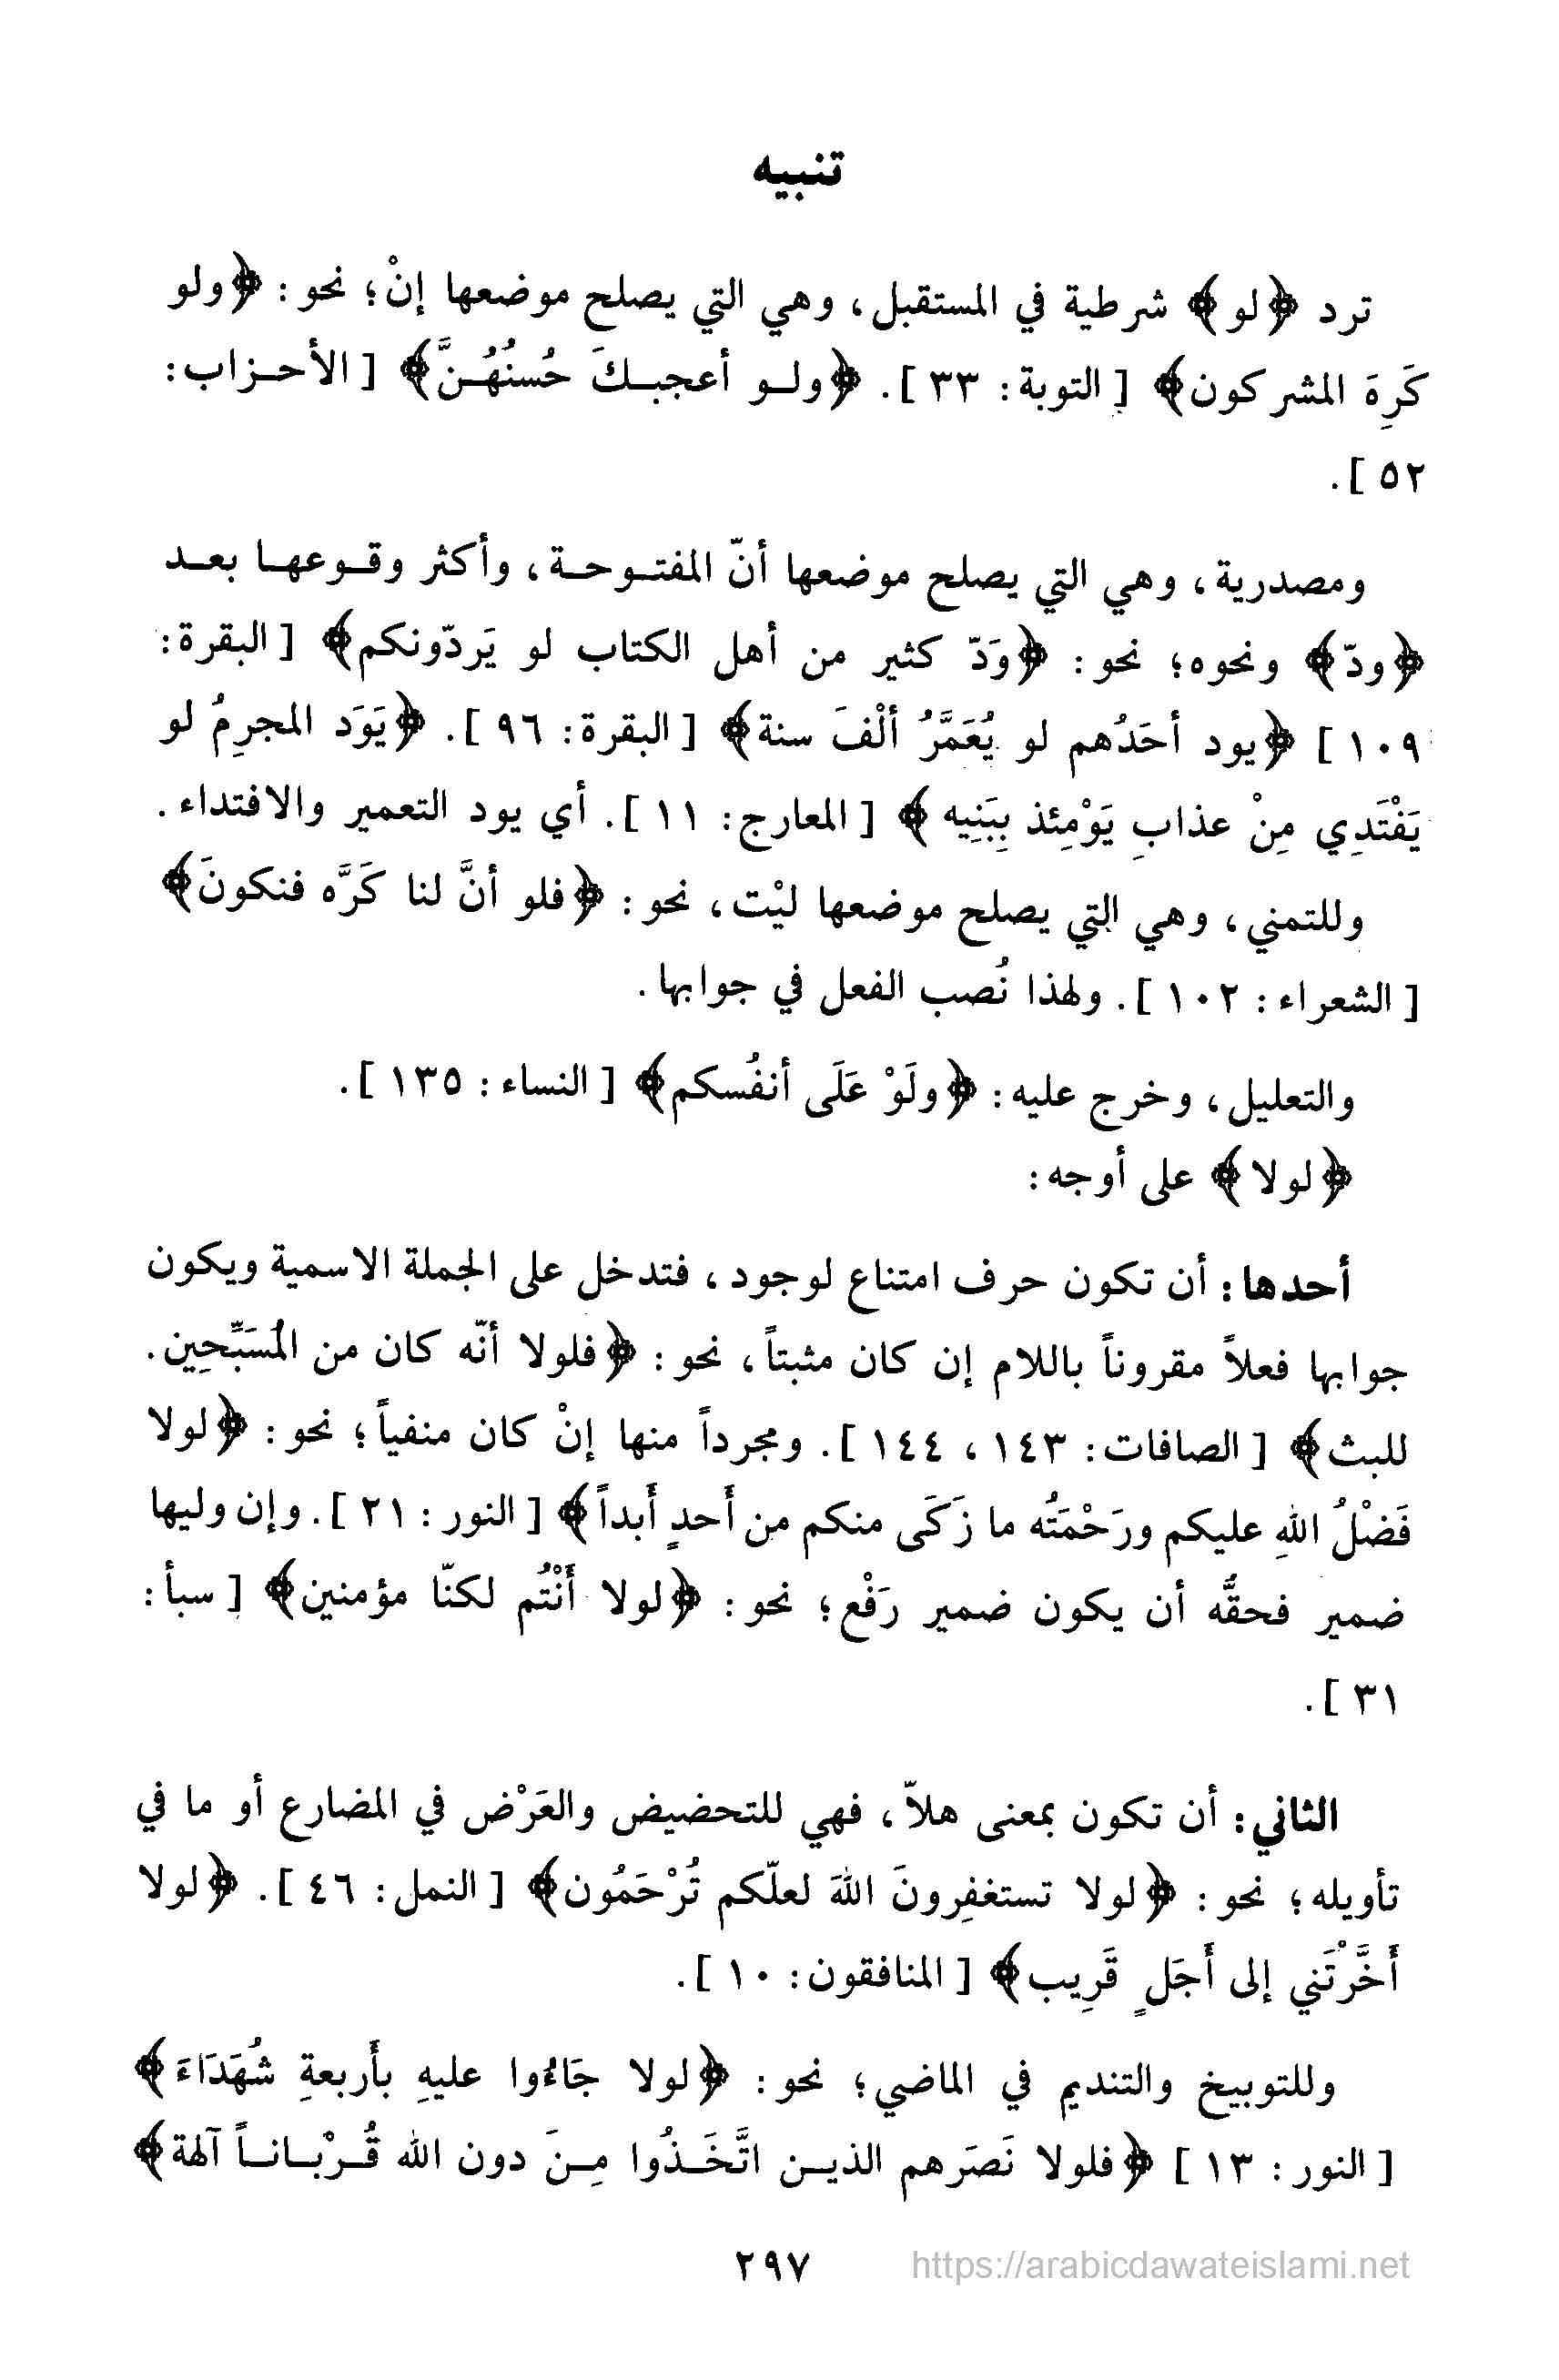 تنبيه
ترد ﴿لو﴾ شرطية في المستقبل، وهي التي يصلح موضعها إنْ؛ نحو: ﴿ولو
كَرِهَ المشركون﴾ [ التوبة: ٣٣ ]. ﴿ولـو أعجبـكَ حُسنُهُـنَّ﴾ [ الأحـزاب:
٥٢ ].
ومصدرية، وهي التي يصلح موضعها أنّ المفتـوحـة، وأكثر وقـوعهـا بعـد
﴿ودّ﴾ ونحوه؛ نحو: ﴿وَدّ كثير من أهل الكتاب لو يَردّونكم﴾ [ البقرة:
١٠٩ ] ﴿يود أحَدُهم لو يُعَمَّرُ ألْفَ سنة﴾ [ البقرة: ٩٦ ]. ﴿يَوَد المجرِمُ لو
يَفْتَدِي مِنْ عذابِ يَوْمِئذ بِبَنِيه ﴾ [ المعارج: ١١ ]. أي يود التعمير والافتداء.
وللتمني، وهي التي يصلح موضعها ليْت، نحو: ﴿فلو أنَّ لنا كَرَّه فنكونَ﴾
[ الشعراء: ١٠٢ ]. ولهذا نُصب الفعل في جوابها.
والتعليل، وخرج عليه: ﴿ولَوْ عَلَى أنفُسكم﴾ [ النساء: ١٣٥ ].
﴿لولا﴾ على أوجه:
أحدها: أن تكون حرف امتناع لوجود، فتدخل على الجملة الاسمية ويكون
جوابها فعلاً مقروناً باللام إن كان مثبتاً، نحو: ﴿فلولا أنّه كان من المُسَبِّحِين.
للبث﴾ [ الصافات: ١٤٣، ١٤٤ ]. ومجرداً منها إنْ كان منفياً؛ نحو: ﴿لولا
فَضْلُ اللهِ عليكم ورَحْمَتُه ما زَكَى منكم من أَحدٍ أَبداً﴾ [ النور: ٢١ ]. وإن وليها
ضمير فحقُّه أن يكون ضمير رَفْع؛ نحو: ﴿لولا أَنْتُم لكنّا مؤمنين﴾ [ سبأ:
٣١ ].
الثاني: أن تكون بمعنى هلاّ، فهي للتحضيض والعَرْض في المضارع أو ما في
تأويله؛ نحو: ﴿لولا تستغفِرونَ اللهَ لعلّكم تُرْحَمُون﴾ [ النمل: ٤٦ ]. ﴿لولا
أَخَّرْتَني إلى أَجَلٍ قَرِيب﴾ [ المنافقون: ١٠ ].
وللتوبيخ والتنديم في الماضي؛ نحو: ﴿لولا جَاءُوا عليهِ بأَربعةِ شُهَدَاءَ﴾
[ النور: ١٣ ] ﴿فلولا نَصَرَهم الذيـن اتَّخَـذُوا مِـنَ دون الله قُـرْبـانـاً آلهة﴾
٢٩٧ https://arabicdawateislami.net